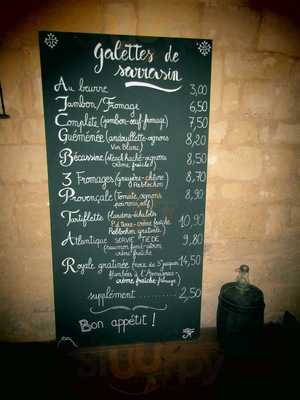 Galettes de
sarrasin
Au beurre 3,00
Jambon/Fromage 6,50
Complète (jambon-œuf-fromage) 7,50
Guéménée (andouillette-oignons 8,20
Vin Blanc)
Bécassine (steack haché-oignons 8,50
crème fraîche)
3 Fromages (gruyère-chèvre 8,70
Roblochon)
Provençale (Tomate, oignons 8,90
poivrons, œuf)
Tartiflette (lardons-échalotes 10,90
P.d terre-crème fraîche
Reblochon gratinée)
Atlantique SERVIE TIEDE 9,80
(saumon fumé-citron
crème fraîche)
Royale gratinée (noix de St Jacques 14,50
flambées à l'Armagnac
crème fraîche fromage)
supplément 2,50
Bon appétit !